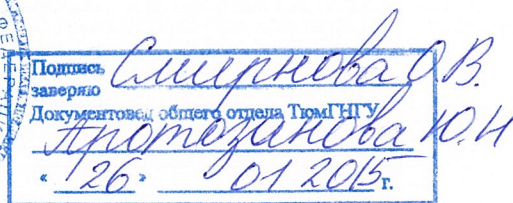 Подпись Смирнова О.В.
заверяю
Документовед общего отдела ТюмГНГУ
Протозанова Ю.Н
« 26 » 01 2015 г.